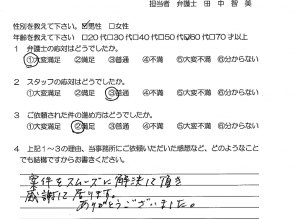 担当者 弁護士 田中智美
性別を教えて下さい。☑男性 □女性
年齢を教えて下さい □20代□30代□40代□50代☑60代□70才以上
1 弁護士の応対はどうでしたか。
①大変満足 ②満足 ③普通 ④不満 ⑤大変不満 ⑥分からない
2 スタッフの応対はどうでしたか。
①大変満足 ②満足 ③普通 ④不満 ⑤大変不満 ⑥分からない
3 ご依頼された件の進め方はどうでしたか。
①大変満足 ②満足 ③普通 ④不満 ⑤大変不満 ⑥分からない
4 上記1~3の理由、当事務所にご依頼いただいた感想など、どのようなこと
でも結構ですからお書きください。
案件をスムーズに解決して頂き
感謝して居ります。
ありがとうございました。